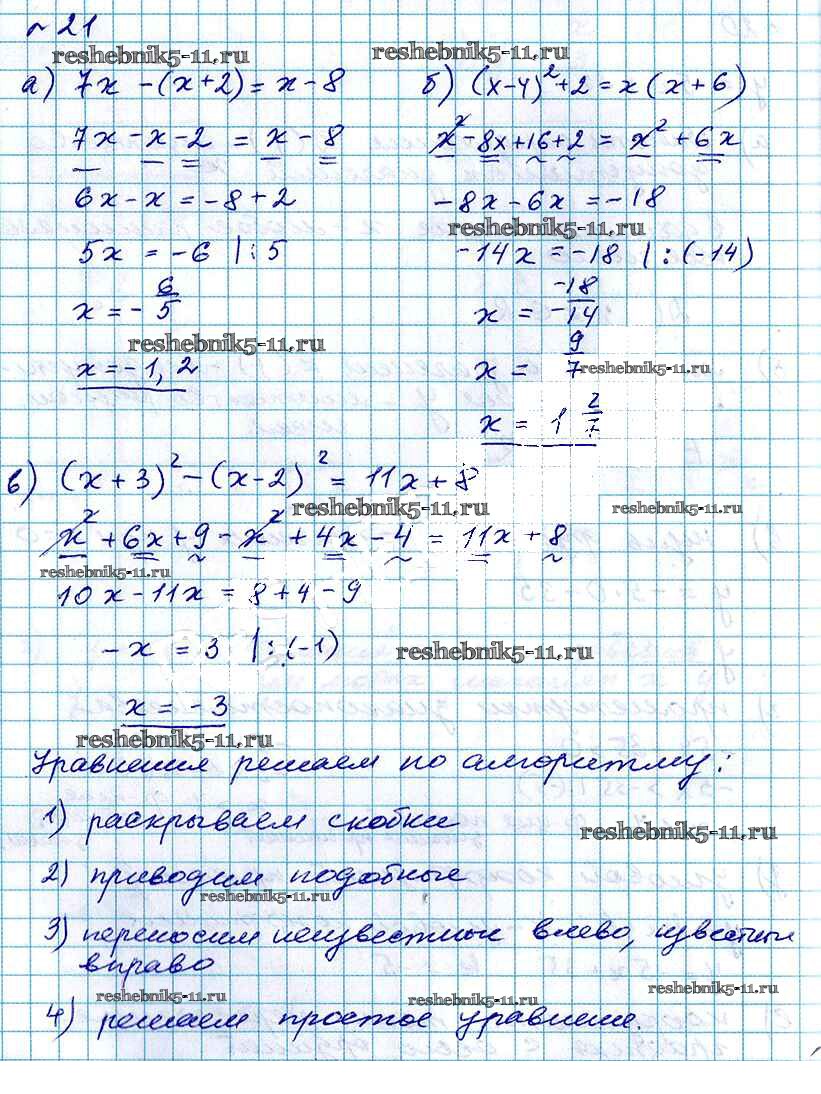 №21
reshebnik5-11.ru reshebnik5-11.ru
а) 7x - (x+2) = x - 8
7x - x - 2 = x - 8
6x - x = -8 + 2
5x = -6 | : 5
x = - 6/5
reshebnik5-11.ru
x = -1,2
б) (x-4)² + 2 = x(x+6)
x² - 8x + 16 + 2 = x² + 6x
-8x - 6x = -18
reshebnik5-11.ru
-14x = -18 | : (-14)
x = -18/-14
x = 9/7
reshebnik5-11.ru
x = 1 2/7
в) (x+3)² - (x-2)² = 11x + 8
reshebnik5-11.ru reshebnik5-11.ru
x² + 6x + 9 - x² + 4x - 4 = 11x + 8
reshebnik5-11.ru
10x - 11x = 8 + 4 - 9
-x = 3 | : (-1)
reshebnik5-11.ru
x = -3
reshebnik5-11.ru
Уравнения решаем по алгоритму:
1) раскрываем скобки
reshebnik5-11.ru
2) приводим подобные
reshebnik5-11.ru
3) переносим неизвестные влево, известные
вправо
reshebnik5-11.ru reshebnik5-11.ru reshebnik5-11.ru
4) решаем простое уравнение.